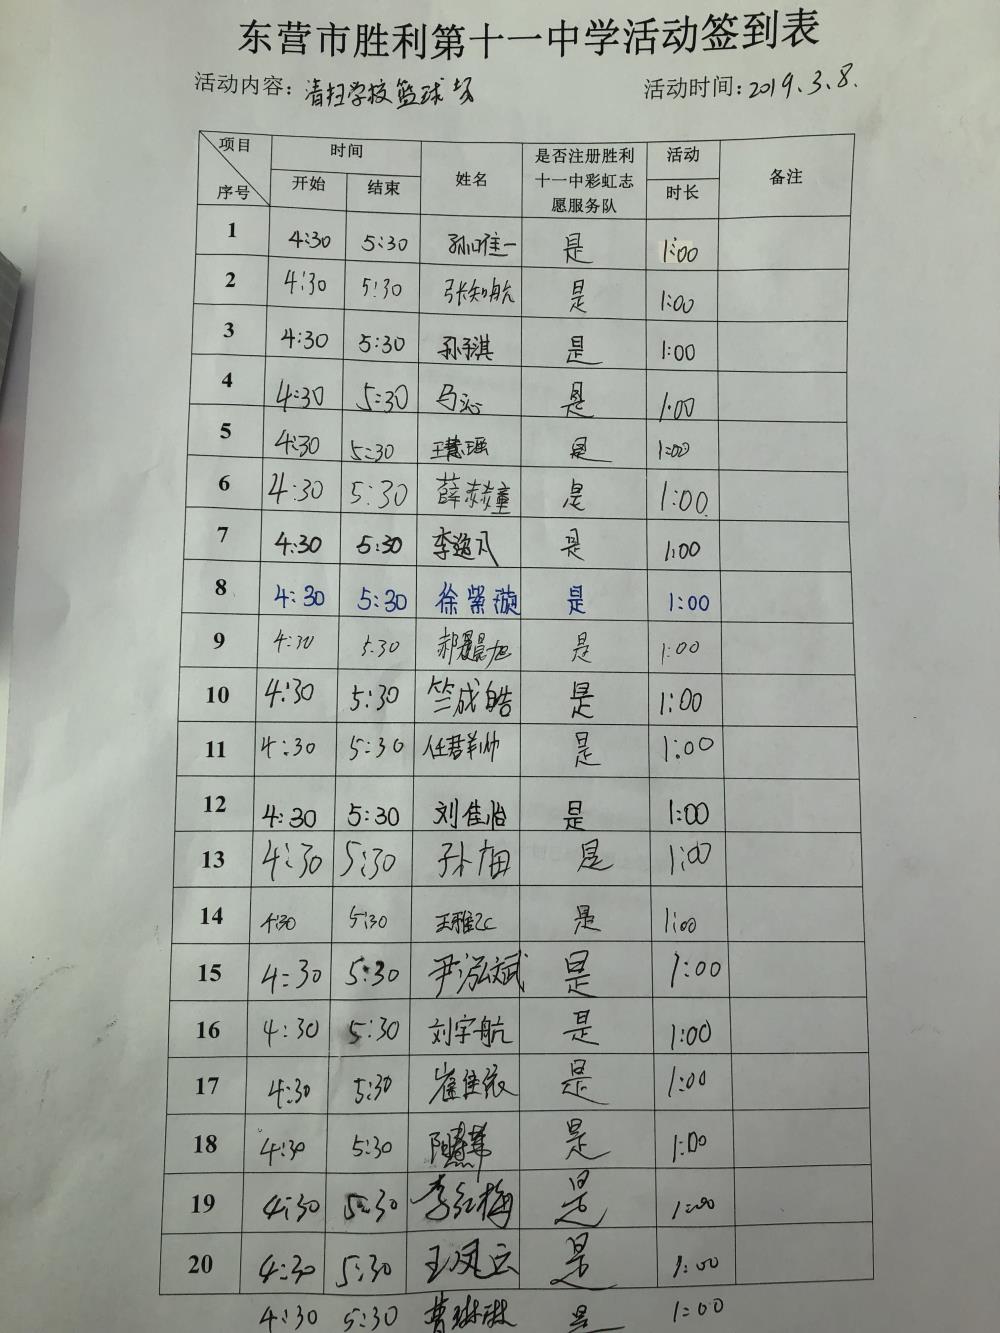 东营市胜利第十一中学活动签到表
活动内容：清扫学校篮球场 活动时间：2019.3.8.
项目 时间 姓名 是否注册胜利十一中彩虹志愿服务队 活动时长 备注
序号 开始 结束
1 4:30 5:30 孙唯一 是 1:00
2 4:30 5:30 张知航 是 1:00
3 4:30 5:30 孙子淇 是 1:00
4 4:30 5:30 马沁 是 1:00
5 4:30 5:30 王慧瑶 是 1:00
6 4:30 5:30 薛赫童 是 1:00
7 4:30 5:30 李逸凡 是 1:00
8 4:30 5:30 徐紫漩 是 1:00
9 4:30 5:30 是 1:00
10 4:30 5:30 竺成皓 是 1:00
11 4:30 5:30 任君羊帅 是 1:00
12 4:30 5:30 刘佳怡 是 1:00
13 4:30 5:30 是 1:00
14 4:30 5:30 是 1:00
15 4:30 5:30 尹泓斌 是 1:00
16 4:30 5:30 刘宇航 是 1:00
17 4:30 5:30 崔佳依 是 1:00
18 4:30 5:30 是 1:00
19 4:30 5:30 李红梅 是 1:00
20 4:30 5:30 王凤云 是 1:00
4:30 5:30 曹琳琳 是 1:00